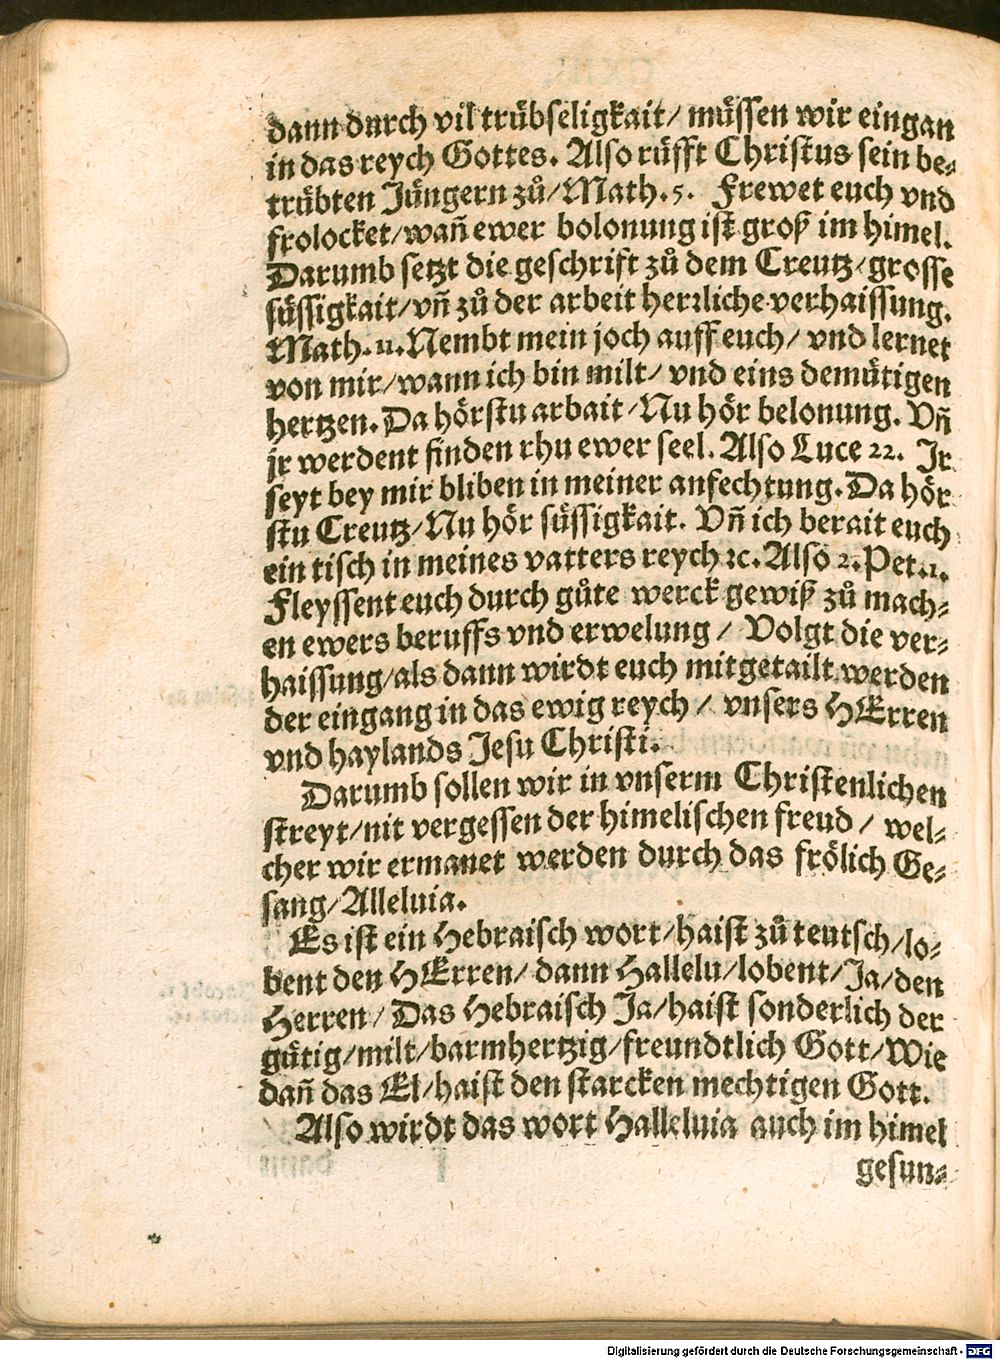 dann durch vil trübseligkait/ müssen wir eingan
in das reych Gottes. Also rüfft Christus sein be⸗
trübten Jüngern zů/Math.5. Frewet euch vnd
frolocket/wañ ewer bolonung ist groß im himel.
Darumb setzt die geschrift zů dem Creutz/grosse
süssigkait/vñ zů der arbeit herꝛliche verhaissung.
Math.11.Nembt mein joch auff euch/ vnd lernet
von mir/wann ich bin milt/ vnd eins demütigen
hertzen. Da hörstu arbait/Nu hör belonung. Vñ
jr werdent finden rhu ewer seel. Also Luce 22. Jr
seyt bey mir bliben in meiner anfechtung. Da hör
stu Creutz/Nu hör süssigkait. Vñ ich berait euch
ein tisch in meines vatters reych ꝛc. Also 2.Pet.1.
Fleyssent euch durch gůte werck gewiß zů mach⸗
en ewers beruffs vnd erwelung/ Volgt die ver⸗
haissung/als dann wirdt euch mitgetailt werden
der eingang in das ewig reych/ vnsers HErren
vnd haylands Jesu Christi.
Darumb sollen wir in vnserm Christenlichen
streyt/nit vergessen der himelischen freud/ wel⸗
cher wir ermanet werden durch das frölich Ge⸗
sang/Alleluia.
Es ist ein Hebraisch wort/haist zů teutsch/lo⸗
bent den HErren/ dann Hallelu/lobent/Ja/den
Herren/ Das Hebraisch Ja/haist sonderlich der
gütig/milt/barmhertzig/freundtlich Gott/Wie
dañ das El/haist den starcken mechtigen Gott.
Also wirdt das wort Halleluia auch im himel
gesun⸗
Digitalisierung gefördert durch die Deutsche Forschungsgemeinschaft - DFG